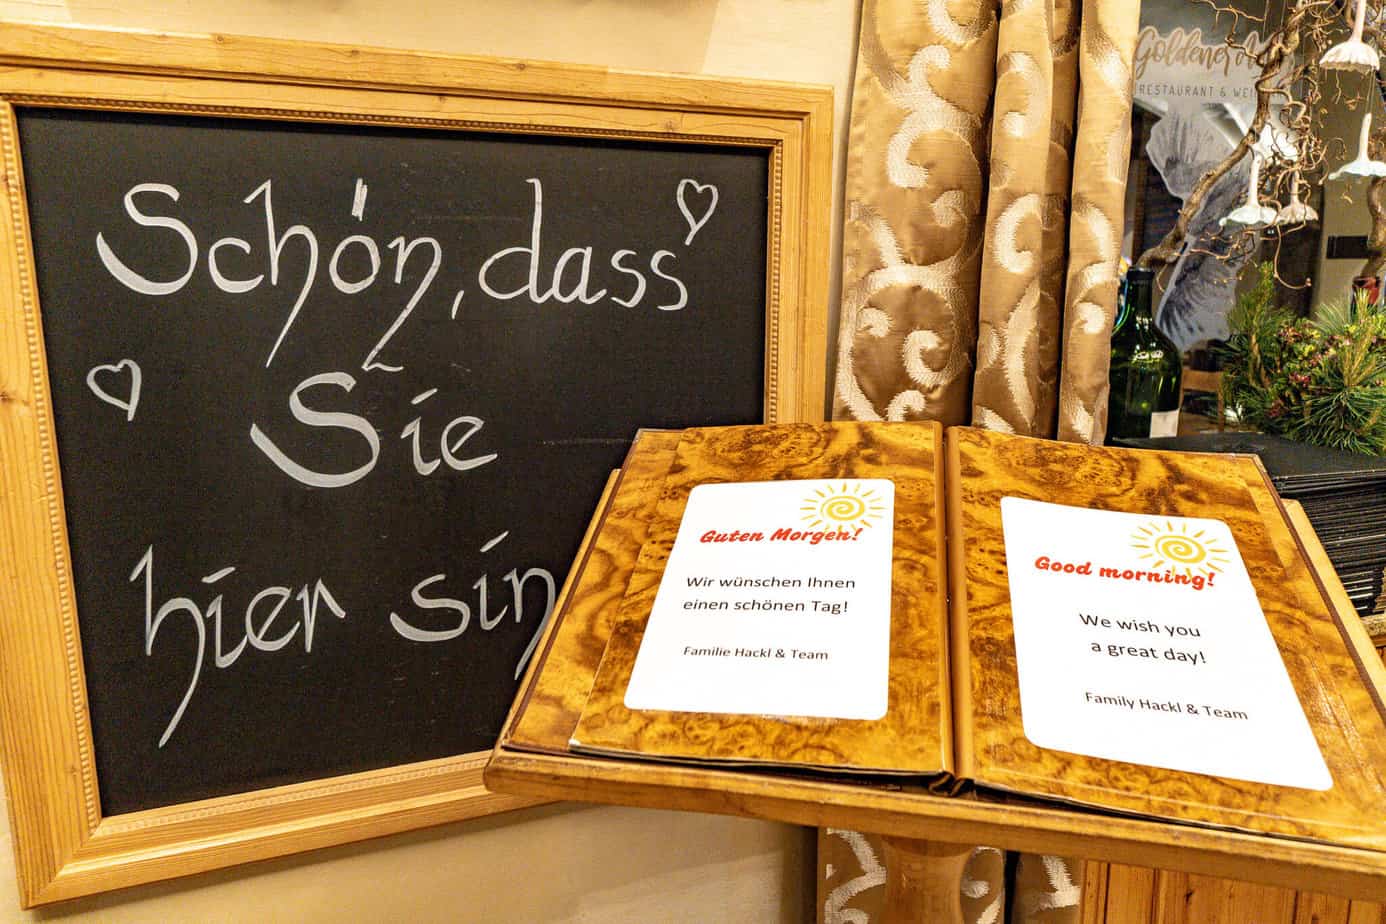 Schön, dass
Sie
hier sin
Guten Morgen!
Wir wünschen Ihnen
einen schönen Tag!
Familie Hackl & Team
Good morning!
We wish you
a great day!
Family Hackl & Team
Goldener
RESTAURANT &